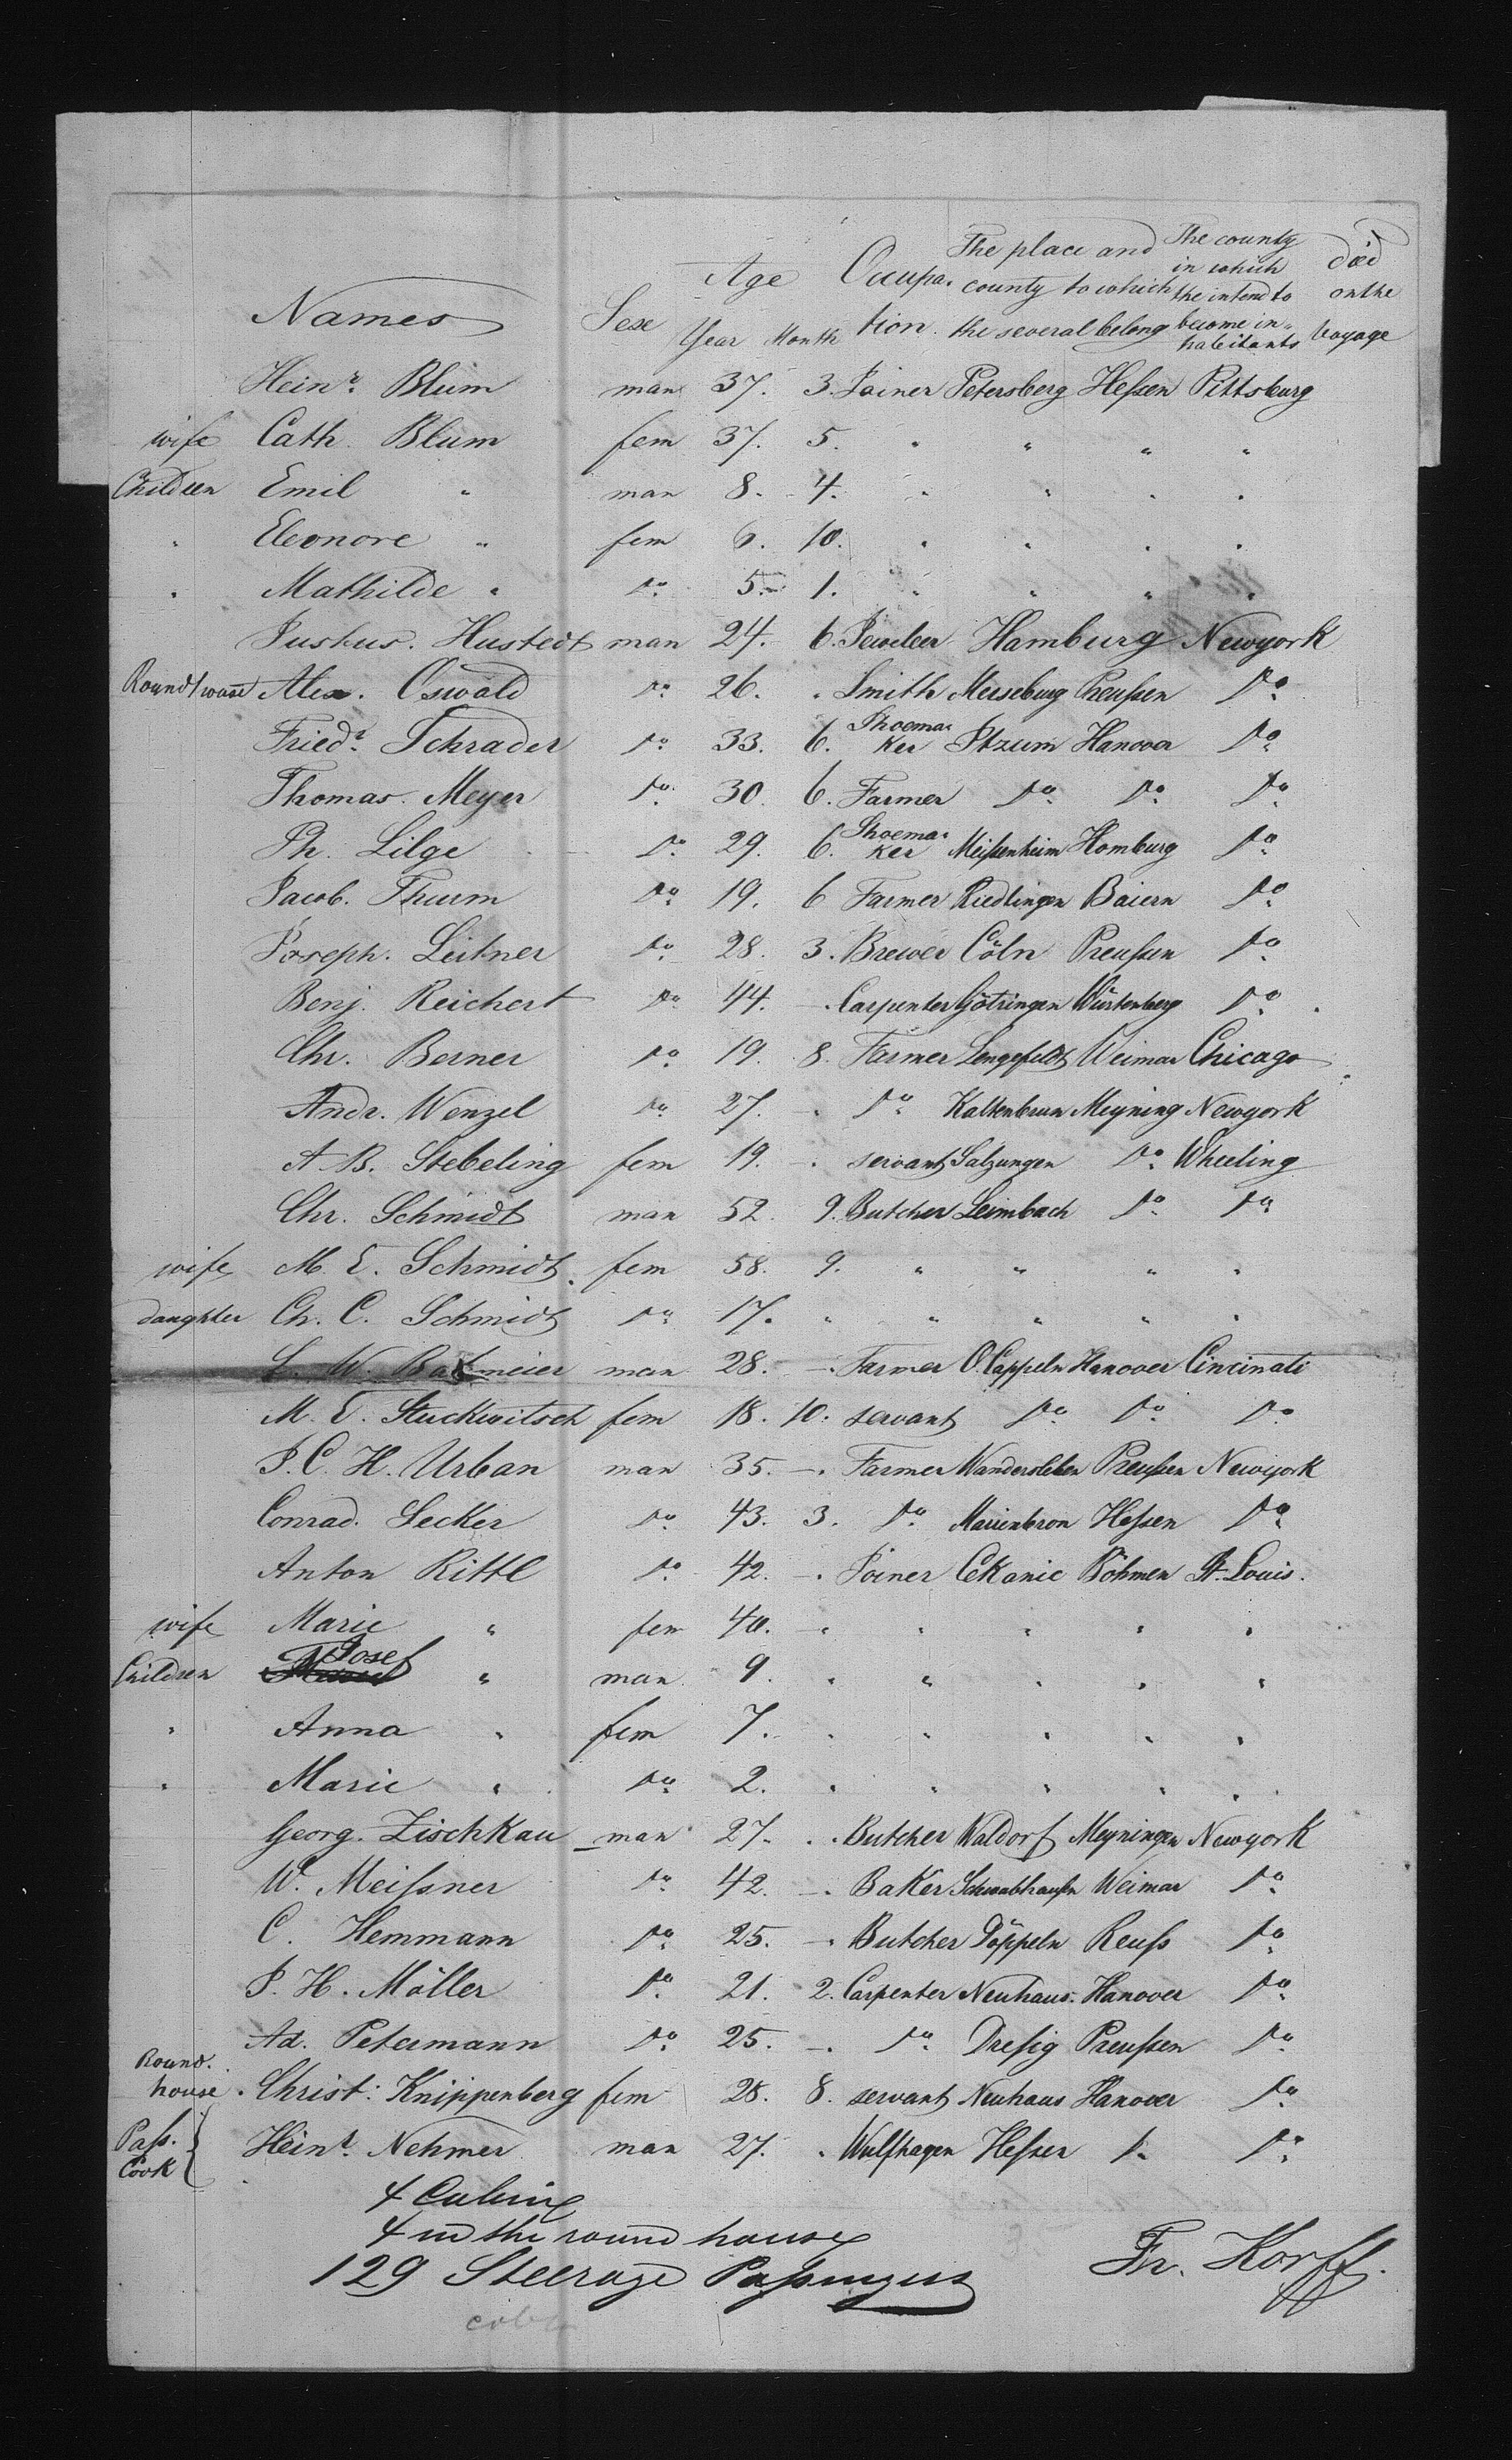 Names Sex Age Year Month Occupa. tion. The place and county to which the several belong The county in which the intend to become in- habitants died on the Voyage
Heinr. Blum man 37. 3. Joiner Petersberg Heſsen Pittsburg
wife Cath. Blum fem 37. 5. " " " "
Children Emil " man 8. 4. " " " "
" Eleonore " fem 6. 10. " " " "
" Mathilde " do 5. 1. " " " "
Justus. Hustedt man 24. 6. Jeweler Hamburg Newyork
Alex. Oswald do 26. . Smith Merseburg Preuſsen do
Friedr. Schrader do 33. 6. Shoema- ker Jtzum Hanover do
Thomas. Meyer do 30. 6. Farmer do do do
Ph. Lilge do 29. 6. Shoema- ker Meiſsenheim Homburg do
Jacob. Thum do 19. 6 Farmer Riedlingen Baiern do
Joseph. Leitner do 28. 3. Brewer Cöln Preuſsen do
Benj. Reichert do 44. -. Carpenter Götzingen Würtenberg do
Chr. Berner do 19. 8. Farmer Lengefeldt Weimar Chicago
Andr. Wenzel do 27. -. do Kaltenbrun Meyning Newyork
A. B. Stebeling fem 19. -. servant Salzungen do Wheeling
Chr. Schmidt man 52. 9. Butcher Leimbach do do
wife M. E. Schmidt. fem 58. 9. " " " "
daughter Ch. C. Schmidt do 17. " " " " "
man 28. -. Farmer O. Cappeln Hanover Cincinati
M. E. Stuckwitsch fem 18. 10. servant do do do
J. C. H. Urban man 35. -. Farmer Wandersleben Preuſsen Newyork
Conrad. Secker do 43. 3. do Marienbron Heſsen do
Anton Rittl do 42. -. Joiner Cekanic Böhmen St. Louis.
wife Marie " fem 40. " " " " "
Children Josef " man 9. " " " " "
" Anna " fem 7. " " " " "
" Marie " do 2. " " " " "
Georg. Zischkau man 27. . . Butcher Waldorf Meyningen Newyork
W. Meiſsner do 42. -. Baker Schwabhauſen Weimar do
C. Hemmann do 25. -. Butcher Pöppeln Reuſs do
J. H. Möller do 21. 2. Carpenter Neuhaus. Hanover do
Ad. Petermann do 25. -. do Dreſsig Preuſsen do
Round. house. Christ: Knippenberg fem 28. 8. servant Neuhaus Hanover do
Paſs. Cook } Heinr. Nehmer man 27. . Wulfhagen Heſsen do
4 Cabin
4 in the round house
129 Steerage Paſsengers
Fr. Korff.